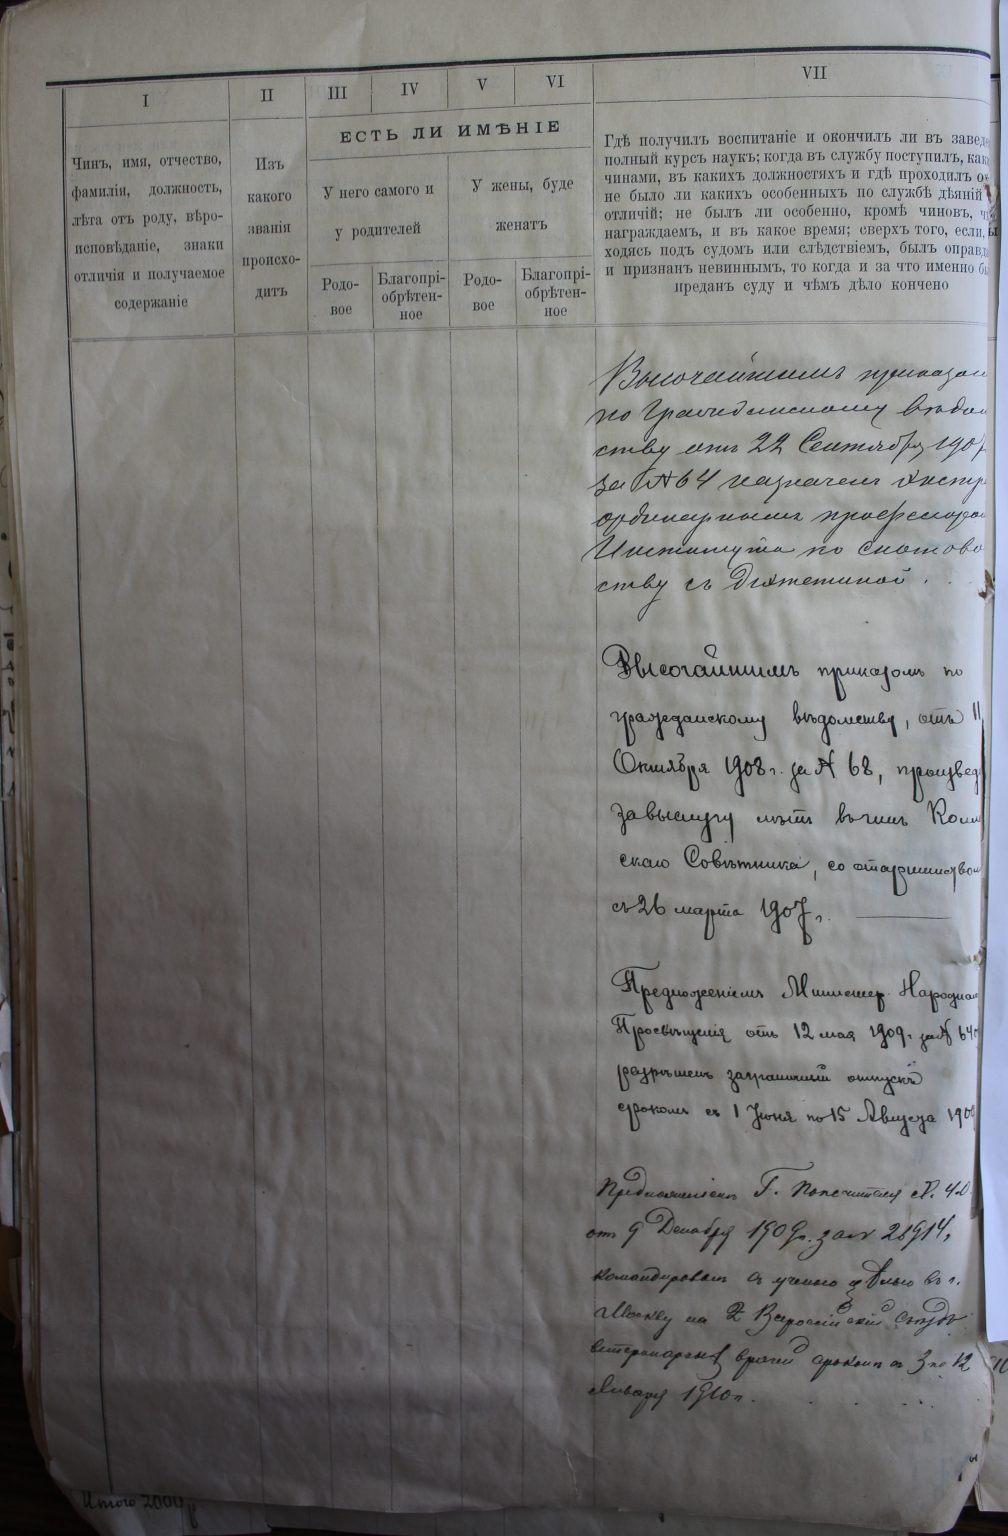 I II III IV V VI VII
ЕСТЬ ЛИ ИМѢНІЕ
Чинъ, имя, отчество,
фамилія, должность,
лѣта отъ роду, вѣро-
исповѣданіе, знаки
отличія и получаемое
содержаніе
Изъ
какого
званія
происхо-
дитъ
У него самого и
у родителей
У жены, буде
женатъ
Родо-
вое
Благопрі-
обрѣтен-
ное
Родо-
вое
Благопрі-
обрѣтен-
ное
Гдѣ получилъ воспитаніе и окончилъ ли въ завед
полный курсъ наукъ; когда въ службу поступилъ, как
чинами, въ какихъ должностяхъ и гдѣ проходилъ о
не было ли какихъ особенныхъ по службѣ дѣяній
отличій; не былъ ли особенно, кромѣ чиновъ, ч
награждаемъ, и въ какое время; сверхъ того, если,
ходясь подъ судомъ или слѣдствіемъ, былъ оправд
и признанъ невиннымъ, то когда и за что именно б
преданъ суду и чѣмъ дѣло кончено
Высочайшимъ приказом
по Гражданскому вѣдом
ству отъ 22 Сентября 190
за № 64 назначен экстр
ординарнымъ профессоро
Института по скотово
ству съ Діэтетикой.
Высочайшимъ приказомъ по
гражданскому вѣдомству, отъ 11
Октября 1908 г. за № 68, произвед
за выслугу лѣтъ въ чинъ Колл
скаго Совѣтника, со старшинством
съ 26 марта 1907 г.
Предложеніемъ Министер. Народна
Просвѣщенія отъ 12 мая 1909 г. за №
разрѣшенъ заграничный отпускъ
срокомъ съ 1 Іюня по 15 Августа 1909
Предложеніемъ Г. Попечителя
отъ 9 Декабря 1909 г. за № 26914,
командированъ съ ученою цѣлью въ г.
Москву на 2 Всероссійскій Съѣздъ
ветеринарныхъ врачей срокомъ съ 3 по 12
Января 1910 г.
Итого 2000 р